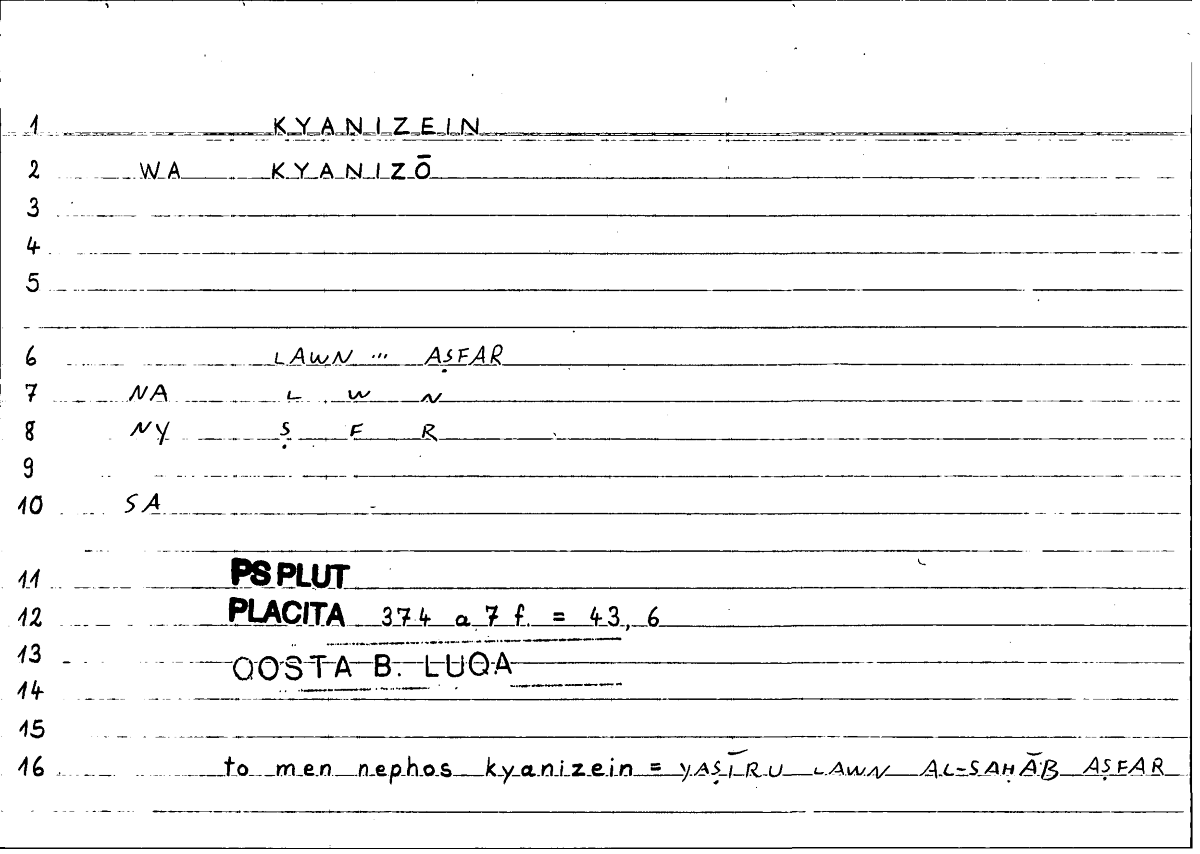 1 KYANIZEIN
2 WA KYANIZŌ
3
4
5
6 LAWN ... AṢFAR
7 NA L W N
8 NY Ṣ F R
9
10 SA
11 PS PLUT
12 PLACITA 374 a 7 f. = 43, 6
13 QOSTA B. LUQA
14
15
16 to men nephos kyanizein = YAṢĪRU LAWN AL-SAḤĀB AṢFAR